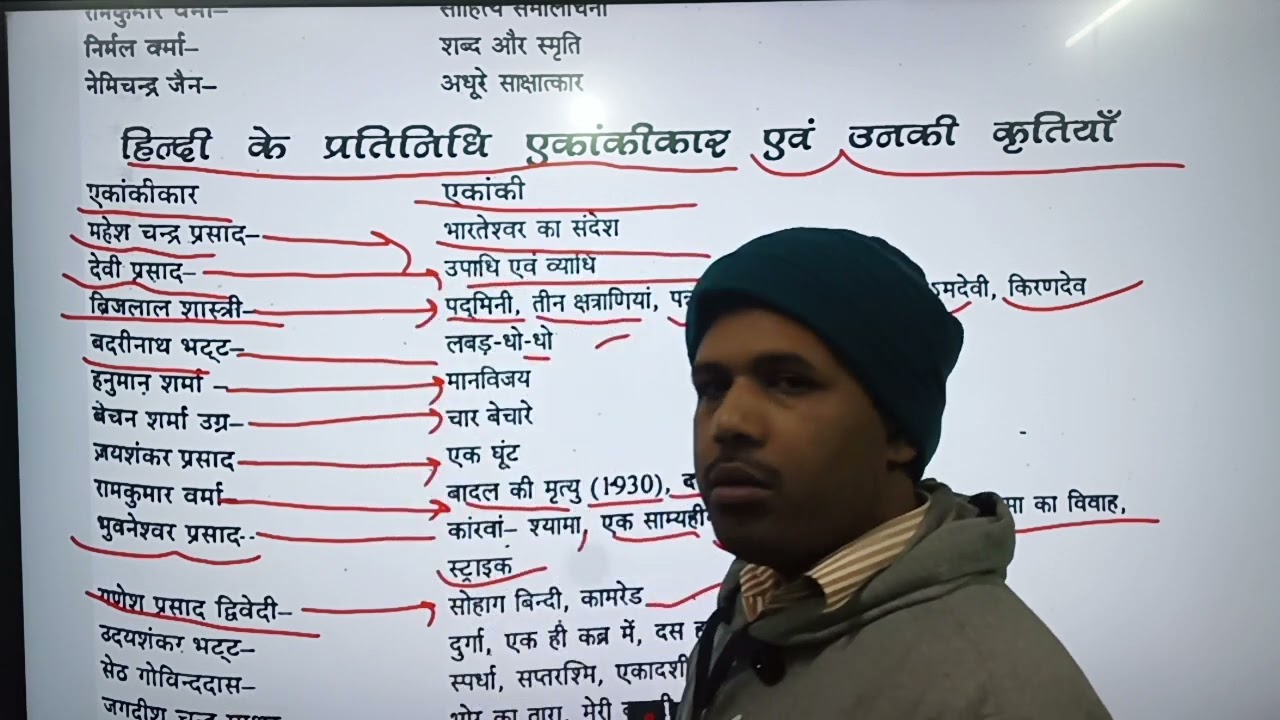 साहित्य समालोचना
निर्मल वर्मा– शब्द और स्मृति
नेमिचन्द्र जैन– अधूरे साक्षात्कार
हिन्दी के प्रतिनिधि एकांकीकार एवं उनकी कृतियाँ
एकांकीकार एकांकी
महेश चन्द्र प्रसाद– भारतेश्वर का संदेश
देवी प्रसाद– उपाधि एवं व्याधि
ब्रिजलाल शास्त्री– पद्मिनी, तीन क्षत्राणियां, किरणदेव
बदरीनाथ भट्ट– लबड़-धो-धो
हनुमान शर्मा – मानविजय
बेचन शर्मा उग्र– चार बेचारे
जयशंकर प्रसाद– एक घूंट
रामकुमार वर्मा– बादल की मृत्यु (1930),
भुवनेश्वर प्रसाद-- कांरवां– श्यामा, एक का विवाह,
स्ट्राइक
गणेश प्रसाद द्विवेदी– सोहाग बिन्दी, कामरेड
उदयशंकर भट्ट– दुर्गा, एक ही कब्र में, दस
सेठ गोविन्ददास– स्पर्धा, सप्तरश्मि, एकादशी
जगदीश चन्द्र भोर का तारा, मेरी